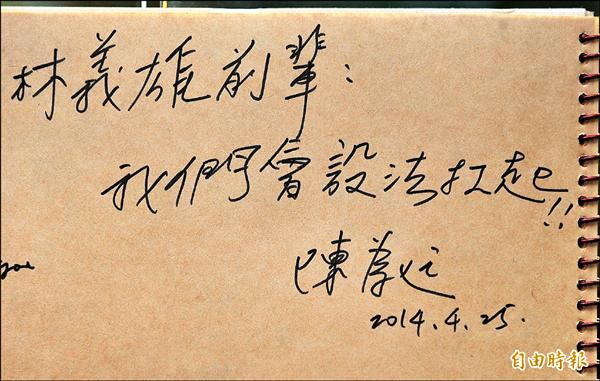 林義雄前輩：
我們會設法扛起!!
陳為廷
2014.4.25.
自由時報